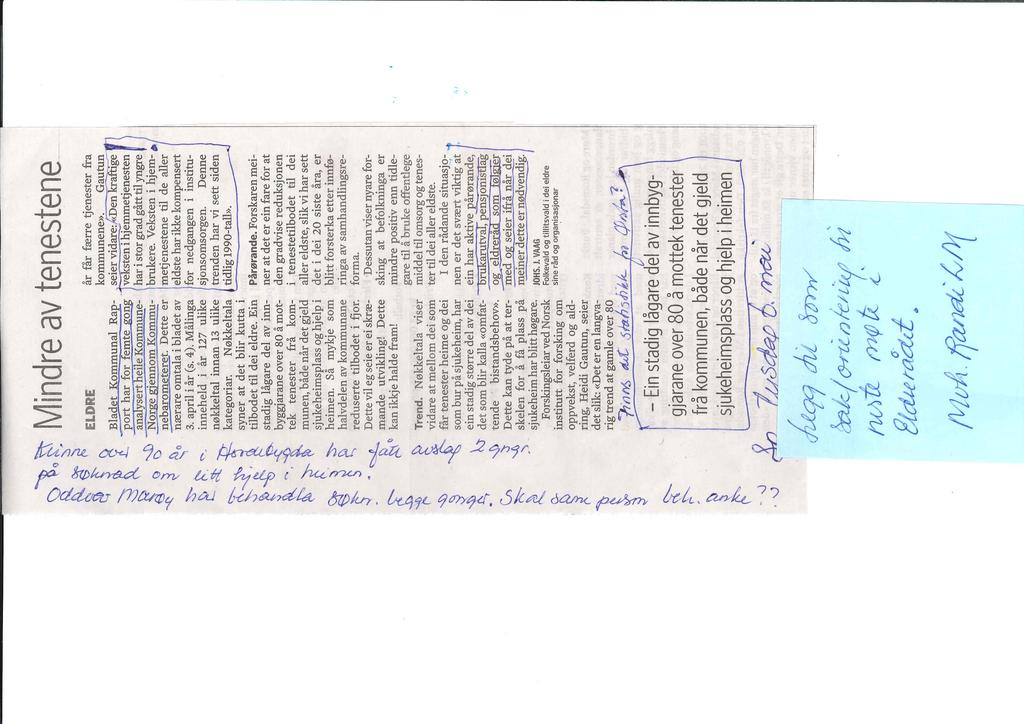 Mindre av tenestene
ELDRE
Bladet Kommunal Rap-
port har for femte gong
analysert heile Kommune-
Norge gjennom Kommu-
nebarometeret. Dette er
nærare omtala i bladet av
3. april i år (s. 4). Målinga
inneheld i år 127 ulike
nøkkeltal innan 12 ulike
kategoriar. Nøkkeltala
syner at det blir kutta i
tilbodet til dei eldre. Ein
stadig lågare del av inn-
byggjarane over 80 å mot-
tek tenester frå kom-
munen, både når det gjeld
sjukeheimsplass og hjelp i
heimen. Så mykje som
halvdelen av kommunane
reduserte tilbodet i fjor.
Dette vil eg seie er ei skræ-
mande utvikling! Dette
kan ikkje halde fram!
Trend. Nøkkeltala viser
vidare at mellom dei som
får tenester heime og dei
som bur på sjukeheim, har
ein stadig større del av dei
det som blir kalla «omfat-
tende bistandsbehov».
Dette kan tyde på at ter-
skelen for å få plass på
sjukeheim har blitt høgare.
Forskingsleiar ved Norsk
institutt for forsking om
oppvekst, velferd og ald-
ring, Heidi Gautun, seier
det slik: «Det er en langva-
rig trend at gamle over 80
år får færre tjenester fra
kommunene». Gautun
seier vidare: «Den kraftige
veksten i hjemmetjenesten
har i stor grad gått til yngre
brukere. Veksten i hjem-
metjenestene til de aller
eldste har ikke kompensert
for nedgangen i institu-
sjonsomsorgen. Denne
trenden har vi sett siden
tidlig 1990-tall».
Pårørande. Forskaren mei-
ner at det er ein fare for at
den gradvise reduksjonen
i tenestetilbodet til dei
aller eldste, slik vi har sett
det i dei 20 siste åra, er
blitt forsterka etter innfø-
ringa av samhandlingsre-
forma.
Dessutan viser nyare for-
sking at befolkninga er
mindre positiv enn tidle-
gare til å bruke offentlege
middel til omsorg og tenes-
ter til dei aller eldste.
I den rådande situasjo-
nen er det svært viktig at
ein har aktive pårørande,
brukarutval, pensjonistlag
og eldreråd som følgjer
med og seier ifrå når dei
meiner dette er nødvendig.
JOHS. I. VAAG
Folkevald og tillitsvald i dei eldre
sine råd og organisasjonar
Finns det statistikk for Ørsta?
– Ein stadig lågare del av innbyg-
gjarane over 80 å mottek tenester
frå kommunen, både når det gjeld
sjukeheimsplass og hjelp i heimen
Tysdag 6. mai
Kvinne over 90 år i Hovdebygda har fått avslag 2 gngr.
på søknad om litt hjelp i heimen.
Oddvar Marøy har behandla søkn. begge gonger. Skal same person beh. anke??
Legg til som
sak/orientering
neste møte i
Eldrerådet.
Mvh. Randi LM